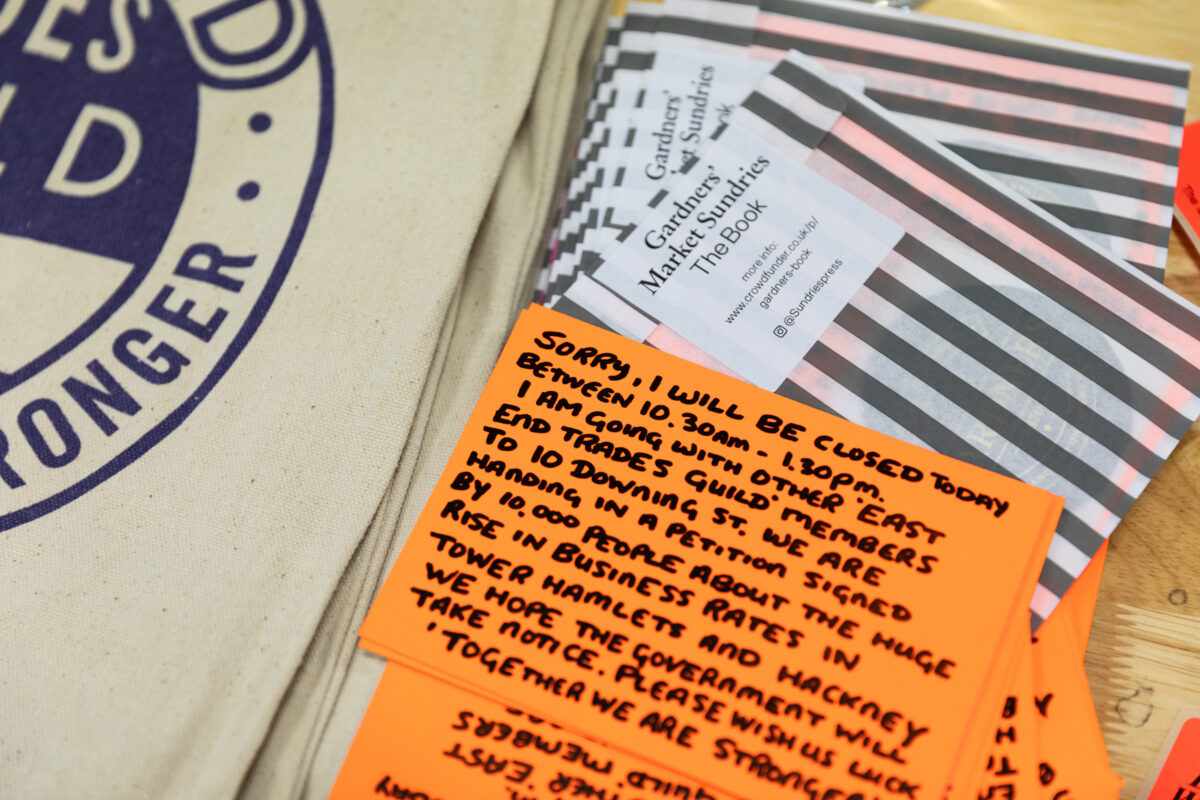 DES
D
LD
PONGER
Gardners'
Market Sundries
Gardners'
Market Sundries
The Book
more info:
www.crowdfunder.co.uk/p/
gardners-book
@Sundriespress
SORRY, I WILL BE CLOSED TODAY
BETWEEN 10.30am - 1.30pm.
I AM GOING WITH OTHER 'EAST
END TRADES GUILD' MEMBERS
TO 10 DOWNING ST. WE ARE
HANDING IN A PETITION SIGNED
BY 10,000 PEOPLE ABOUT THE HUGE
RISE IN BUSINESS RATES IN
TOWER HAMLETS AND HACKNEY
WE HOPE THE GOVERNMENT WILL
TAKE NOTICE. PLEASE WISH US LUCK
'TOGETHER WE ARE STRONGER
MEMBERS
EAST